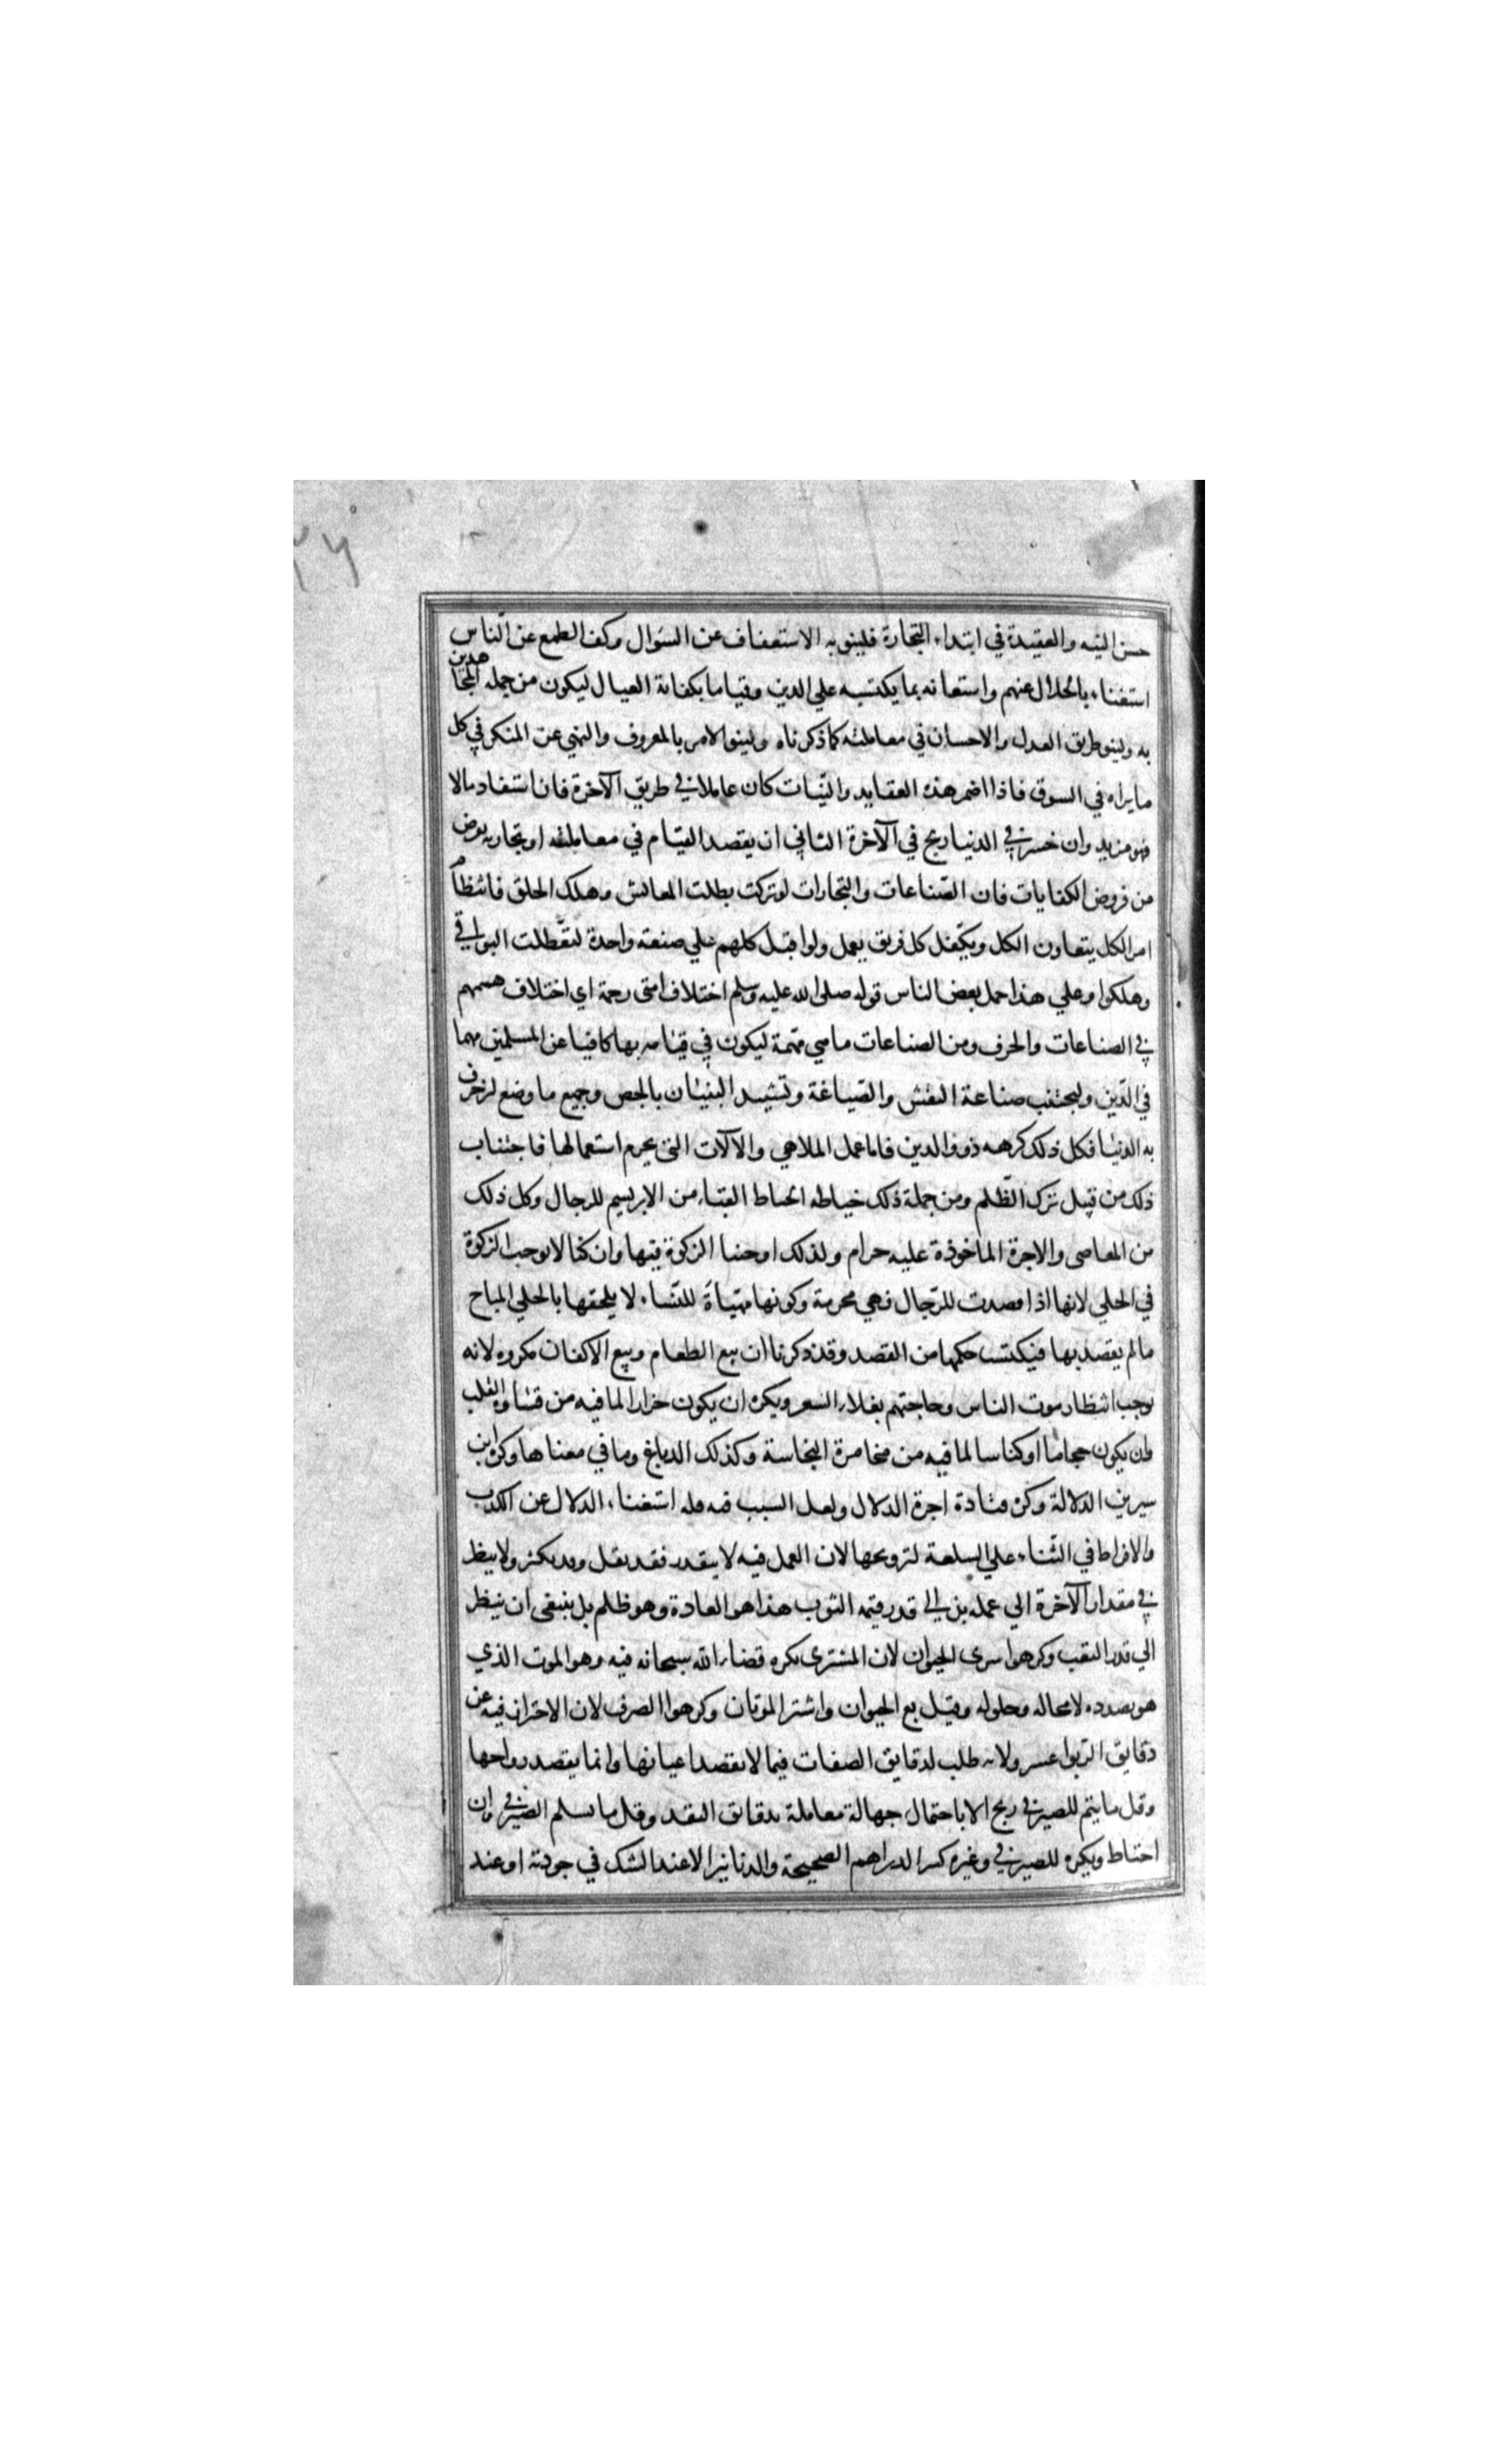 ٢٦
حسن النيه والعقيدة في ابتداء التجارة فلينو به الاستعفاف عن السؤال وكف الطمع عن الناس
استغناء بالحلال عنهم واستعانه بما يكتسبه علي الدين وقياما بكفاية العيال ليكون من جمله المجاهدين
به ولينو طريق العدل والاحسان في معاملته كما ذكرناه ولينو الامر بالمعروف والنهي عن المنكر في كل
ما يراه في السوق فاذا اضمر هذه العقايد والنيات كان عاملا في طريق الآخرة فان استفاد مالا
فهو مزيد وان خسر في الدنيا ربح في الآخرة الثاني ان يقصد القيام في معاملته او تجارته بفرض
من فروض الكفايات فان الصناعات والتجارات لو تركت بطلت المعائش وهلك الخلق فانتظام
امر الكل بتعاون الكل وتكفل كل فريق بعمل ولو اقبل كلهم علي صنعة واحدة لتعطلت البواقي
وهلكوا وعلي هذا حمل بعض الناس قوله صلى الله عليه وسلم اختلاف امتى رحمة اي اختلاف هممهم
في الصناعات والحرف ومن الصناعات ما هي مهمة ليكون في قيامه بها كافيا عن المسلمين مهما
في الدين وليجتنب صناعة النقش والصياغة وتشييد البنيان بالجص وجميع ما وضع لزخرف
به الدنيا فكل ذلك كرهه ذوو الدين فاما عمل الملاهي والآلات التى يحرم استعمالها فاجتناب
ذلك من قبيل ترك الظلم ومن جملة ذلك خياطه الخياط القباء من الابريسم للرجال وكل ذلك
من المعاصى والاجرة الماخوذة عليه حرام ولذلك اوجبنا الزكوة فيها وان كنا لا نوجب الزكوة
في الحلي لانها اذا قصدت للرجال فهي محرمة وكونها مهيأة للنساء لا يلحقها بالحلي المباح
مالم يقصد بها فيكتسب حكمها من القصد وقد ذكرنا ان بيع الطعام وبيع الاكفان مكروه لانه
يوجب انتظار موت الناس وحاجتهم بغلاء السعر ويكره ان يكون جزارا لما فيه من قساوة القلب
وان يكون حجاما او كناسا لما فيه من مخامرة النجاسة وكذلك الدباغ وما في معناها وكره ابن
سيرين الدلالة وكره قتادة اجرة الدلال ولعل السبب فيه قله استغناء الدلال عن الكذب
والافراط في الثناء علي السلعة لترويجها لان العمل فيه لا يتقدر فقد يقل وقد يكثر ولا ينظر
في مقدار الآخرة الي عمله بل الي قدر قيمه الثوب هذا هو العادة وهو ظلم بل ينبغى ان ينظر
الي قدر التعب وكرهوا شرى الحيوان لان المشترى يكره قضاء الله سبحانه فيه وهو الموت الذي
هو بصدده لا محاله وحلوله وقيل بع الحيوان واشتر الموتان وكرهوا الصرف لان الاحتراز فيه عن
دقايق الربوا عسر ولانه طلب لدقايق الصفات فيما لا يقصد اعيانها وانما يقصد رواجها
وقل ما يتم للصيرفي ربح الا باحتمال جهالة معاملة بدقائق النقد وقل ما يسلم الصيرفي وان
احتاط ويكره للصيرفي وغيره كسر الدراهم الصحيحة والدنانير الا عند الشك في جودته او عند